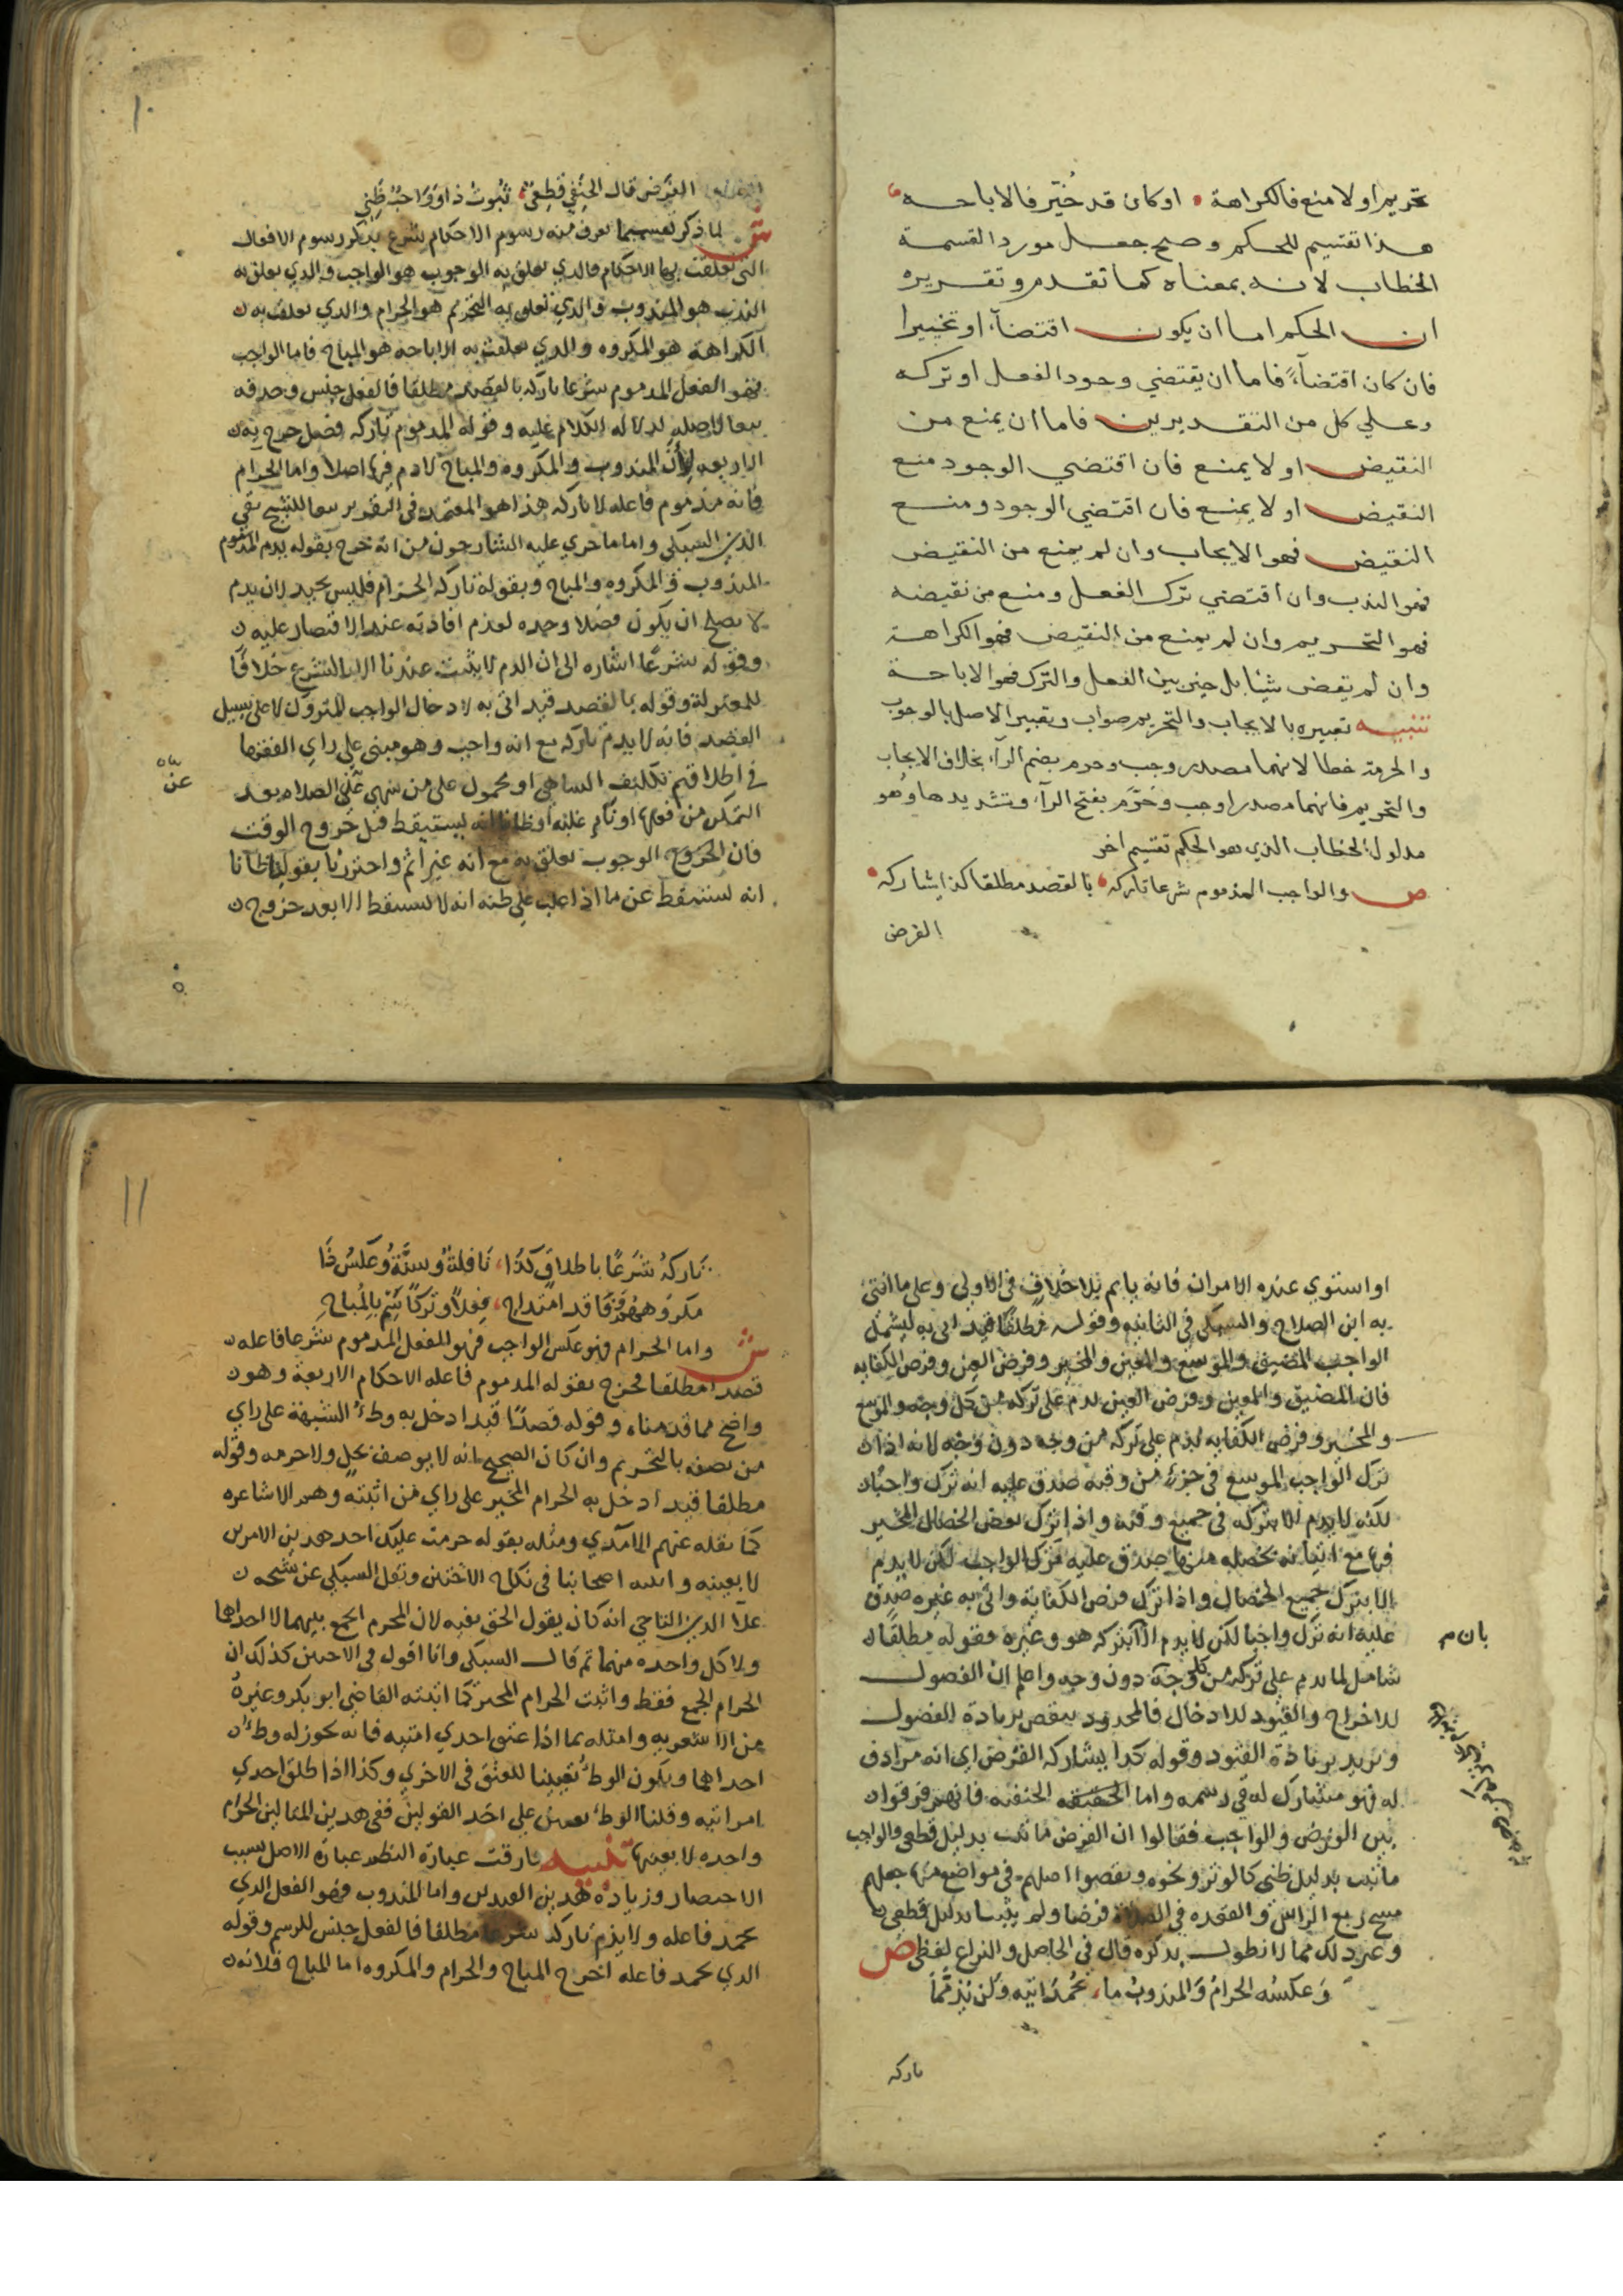 تحريم او لا منع فالكراهة او كان قد خُيّر فالاباحه
هذا تقسيم للحكم وصح جعل مورد القسمة
الخطاب لانه بمعناه كما تقدم وتقريره
ان الحكم اما ان يكون اقتضآء او تخييرا
فان كان اقتضآءً فاما ان يقتضي وجود الفعل او تركه
وعلي كل من التقديرين فاما ان يمنع من
النقيض او لا يمنع فان اقتضي الوجود منع
النقيض او لا يمنع فان اقتضي الوجود ومنع
النقيض فهو الايجاب وان لم يمنع من النقيض
فهو الندب وان اقتضي ترك الفعل ومنع من نقيضه
فهو التحريم وان لم يمنع من النقيض فهو الكراهة
وان لم يقض شيئا بل خير بين الفعل والترك فهو الاباحة
تنبيه تعبيره بالايجاب والتحريم صواب وتعبير الاصل بالوجوب
والحرمة خطا لانهما مصدر وجب وحرم بضم الرآء بخلاف الايجاب
والتحريم فانهما مصدر اوجب وحَرّم بفتح الرآء وتشديدها وهو
مدلول الخطاب الذي هو الحكم تقسيم اخر
ص والواجب المذموم شرعا تاركه بالقصد مطلقا كذا يشاركه
الفرض
١٠
الفرض قال الحنفي قطعي ثبوت ذا وواجب ظني
ش لما ذكر تقسيما تعرف منه رسوم الاحكام شرع يذكر رسوم الافعال
التي تعلقت بها الاحكام فالذي تعلق به الوجوب هو الواجب والذي تعلق به
الندب هو المندوب والذي تعلق به التحريم هو الحرام والذي تعلقت به
الكراهة هو المكروه والذي تعلقت به الاباحة هو المباح فاما الواجب
فهو الفعل المذموم شرعا تاركه بالقصد مطلقا فالفعل جنس وحذفه
تبعا لاصله لدلالة الكلام عليه وقوله المذموم تاركه فصل خرج به
الاربعه لأن المندوب والمكروه والمباح لا ذم فيها اصلا واما الحرام
فانه مذموم فاعله لا تاركه هذا هو المعتمد في التقرير تبعا للشيخ تقي
الدين السبكي واما ما جري عليه الشارحون من انه خرج بقوله يذم المذموم
المندوب والمكروه والمباح وبقوله تاركه الحرام فليس بجيد لان يذم
لا يصلح ان يكون فصلا وحده لعدم افادته عند الاقتصار عليه
وقوله شرعًا اشاره الى ان الذم لا يثبت عندنا الا بالشرع خلافًا
للمعتزلة وقوله بالقصد قيد اتى به لادخال الواجب المتروك لا على سبيل
القصد فانه لا يذم تاركه مع انه واجب وهو مبني علي راي الفقها
في اطلاقهم تكليف الساهي او محمول على من سهى عن الصلاه بعد
التمكن من فعلها او نام غلبه او ظانا انه يستيقظ قبل خروج الوقت
فان الوجوب تعلق به مع انه غير اثم واحترزنا بقولنا ظانا
انه يستيقظ عن ما اذا غلب علي ظنه انه لا يستيقظ الا بعد خروج
عن
او استوي عنده الامران فانه ياثم بلا خلافٍ في الاولى وعلى ما افتى
به ابن الصلاح والسبكي في الثانيه وقوله مطلقًا قيد اتى به ليشمل
الواجب المضيق والموسع والمعين والمخير وفرض العين وفرض الكفايه
فان المضيق والمعين وفرض العين يذم على تركه من كل وجه والموسع
والمخير وفرض الكفايه يذم على تركه من وجه دون وجه لانه اذا
ترك الواجب الموسع في جزء من وقته صدق عليه انه ترك واجبا
لكنه لا يذم الا بتركه في جميع وقته واذا ترك بعض الخصال المخير
فيها مع اتيانه بخصله منها صدق عليه ترك الواجب لكن لا يذم
الا بترك جميع الخصال واذا ترك فرض الكفاية واتى به غيره صدق
عليه انه ترك واجبا لكن لا يذم الا بتركه هو وغيره فقوله مطلقًا
بان م
شامل لما يذم على تركه من كل وجه دون وجه واعلم ان الفصول
للاخراج والقيود للادخال فالمحدود ينقص بزيادة الفصول
ويزيد بزيادة القيود وقوله كذا يشاركه الفرض اي انه مرادف
له فهو مشارك له في رسمه واما الحنفيه فانهم فرقوا
بين الفرض والواجب فقالوا ان الفرض ما ثبت بدليل قطعي والواجب
ما ثبت بدليل ظني كالوتر ونحوه ونقضوا اصلهم في مواضع منها جعلهم
مسح ربع الراس والقعده في الصلاة فرضا ولم يثبتا بدليل قطعي
وغير ذلك مما لا نطول بذكره قال في الحاصل والنزاع لفظي ص
وَعكسُه الحرامُ وَالمندوبُ ما يُحمَدُ اتيه وَلن يُذمَّا
تاركه
١١
تاركهُ شَرعًا باطلاقٍ كذا نَافلةٌ وسنَّةٌ وعكسُ ذَا
مكروههُم وما قد امتداح فعلاً وتركًا سَمِّ بالمُباحِ
ش واما الحرام فهو عكس الواجب فهو الفعل المذموم شرعا فاعله
قصدا مطلقا فخرج بقوله المذموم فاعله الاحكام الاربعة وهو
واضح مما قدمناه وقوله قصدًا قيد ادخل به وطءُ الشبهة على راي
من يصفه بالتحريم وان كان الصحيح انه لا يوصف بحل ولا حرمه وقوله
مطلقا قيد ادخل به الحرام المخير على راي من اثبته وهم الاشاعره
كما نقله عنهم الامدي ومثله بقوله حرمت عليك احد هذين الامرين
لا بعينه واثبته اصحابنا في نكاح الاختين ونقل السبكي عن شيخه
علا الدين الباجي انه كان يقول الحق نفيه لان المحرم الجمع بينهما لا احداهما
ولا كل واحده منهما ثم قال السبكي وانا اقول في الاختين كذلك ان
الحرام الجمع فقط واثبت الحرام المخير كما اثبته القاضي ابو بكر وغيره
من الاشعريه وامثله بما اذا عتق احدي امتيه فانه يجوز له وطء
احداهما ويكون الوطءُ تعيينا للعتق في الاخرى وكذا اذا طلق احدي
امراتيه وقلنا الوطء تعيين على احد القولين ففي هذين المثالين الحرام
واحده لا بعينها تنبيه فارقت عبارة النظم عبارة الاصل بسبب
الاختصار وزيادة هذين القيدين واما المندوب فهو الفعل الذي
يحمد فاعله ولا يذم تاركه شرعا مطلقا فالفعل جنس للرسم وقوله
الذي يحمد فاعله اخرج المباح والحرام والمكروه اما المباح فلانه